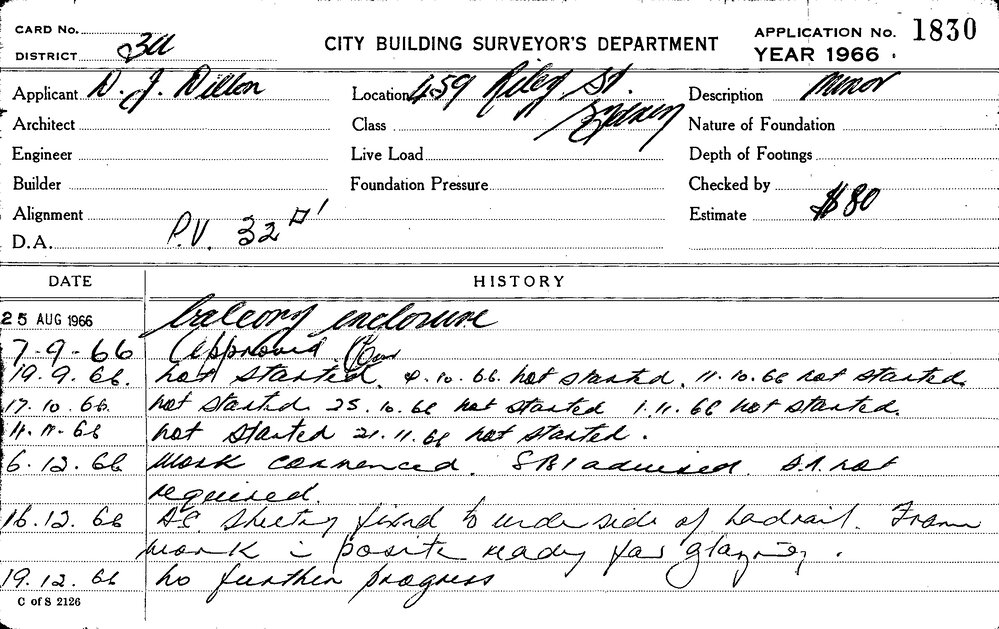 CARD No.
DISTRICT 3a
CITY BUILDING SURVEYOR'S DEPARTMENT
APPLICATION No. 1830
YEAR 1966
Applicant D. J. Dillon
Location 459 Riley St.
Sydney
Description Minor
Architect
Class
Nature of Foundation
Engineer
Live Load
Depth of Footings
Builder
Foundation Pressure
Checked by
Alignment
Estimate $80
D.A. P.V. 32 □'
DATE HISTORY
25 AUG 1966 balcony enclosure
7-9-66 Approved
19.9.66. not started. 4.10.66. not started. 11.10.66 not started.
17.10.66. not started. 25.10.66 not started 1.11.66 not started.
11.11.66 not started 21.11.66 not started.
6.12.66 Work commenced. SBI advised. D.A. not
required.
16.12.66 A.C. Sheeting fixed to underside of handrail. Frame
work in position ready for glazing.
19.12.66 no further progress
C of S 2126